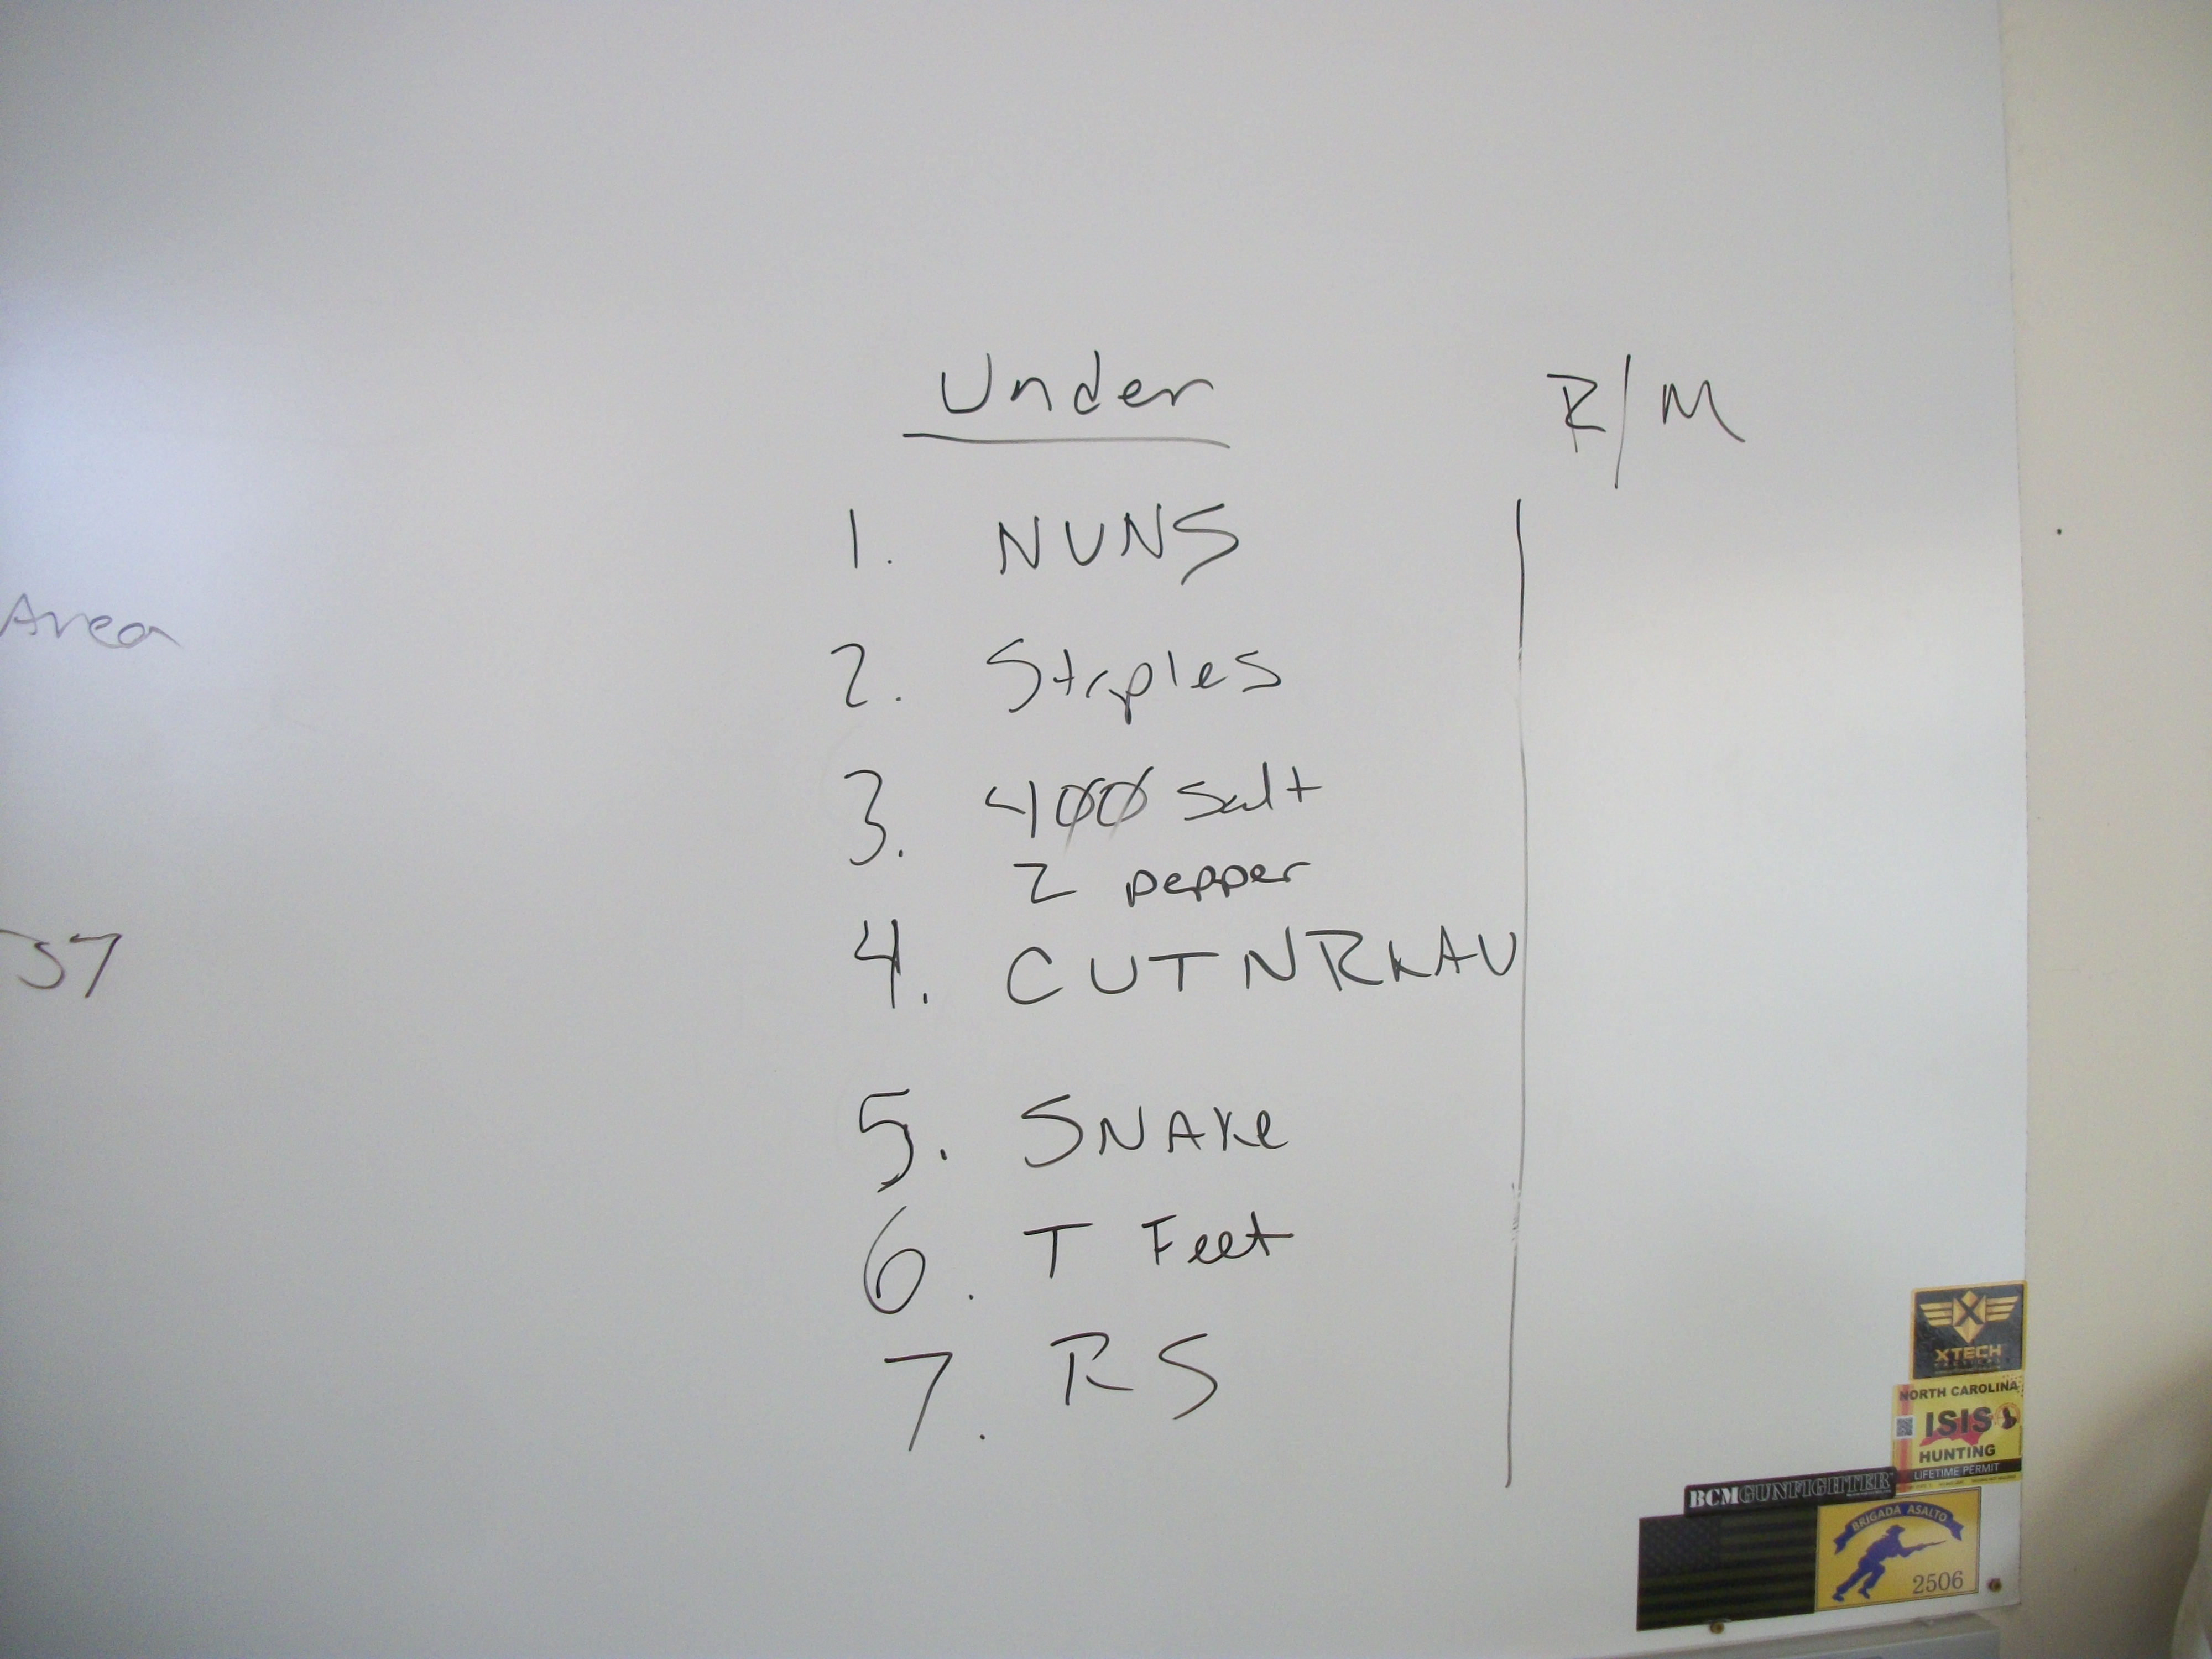 Under
R/M
1. NUNS
2. Staples
3. 400 Salt
2 pepper
4. CUTNRKAU
5. SNAKe
6. T Feet
7. RS
Area
57
XTECH
NORTH CAROLINA
ISIS
HUNTING
LIFETIME PERMIT
BCMGUNFIGHTER
BRIGADA ASALTO
2506